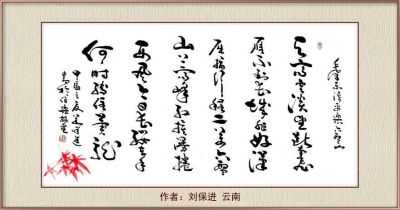 毛泽东清平乐六盘山
天高云淡望断南
雁不到长城非好汉
屈指行程二万六盘
山上高峰红旗漫卷
西风今日长缨在手
何时缚住苍龙
作者：刘保进 云南